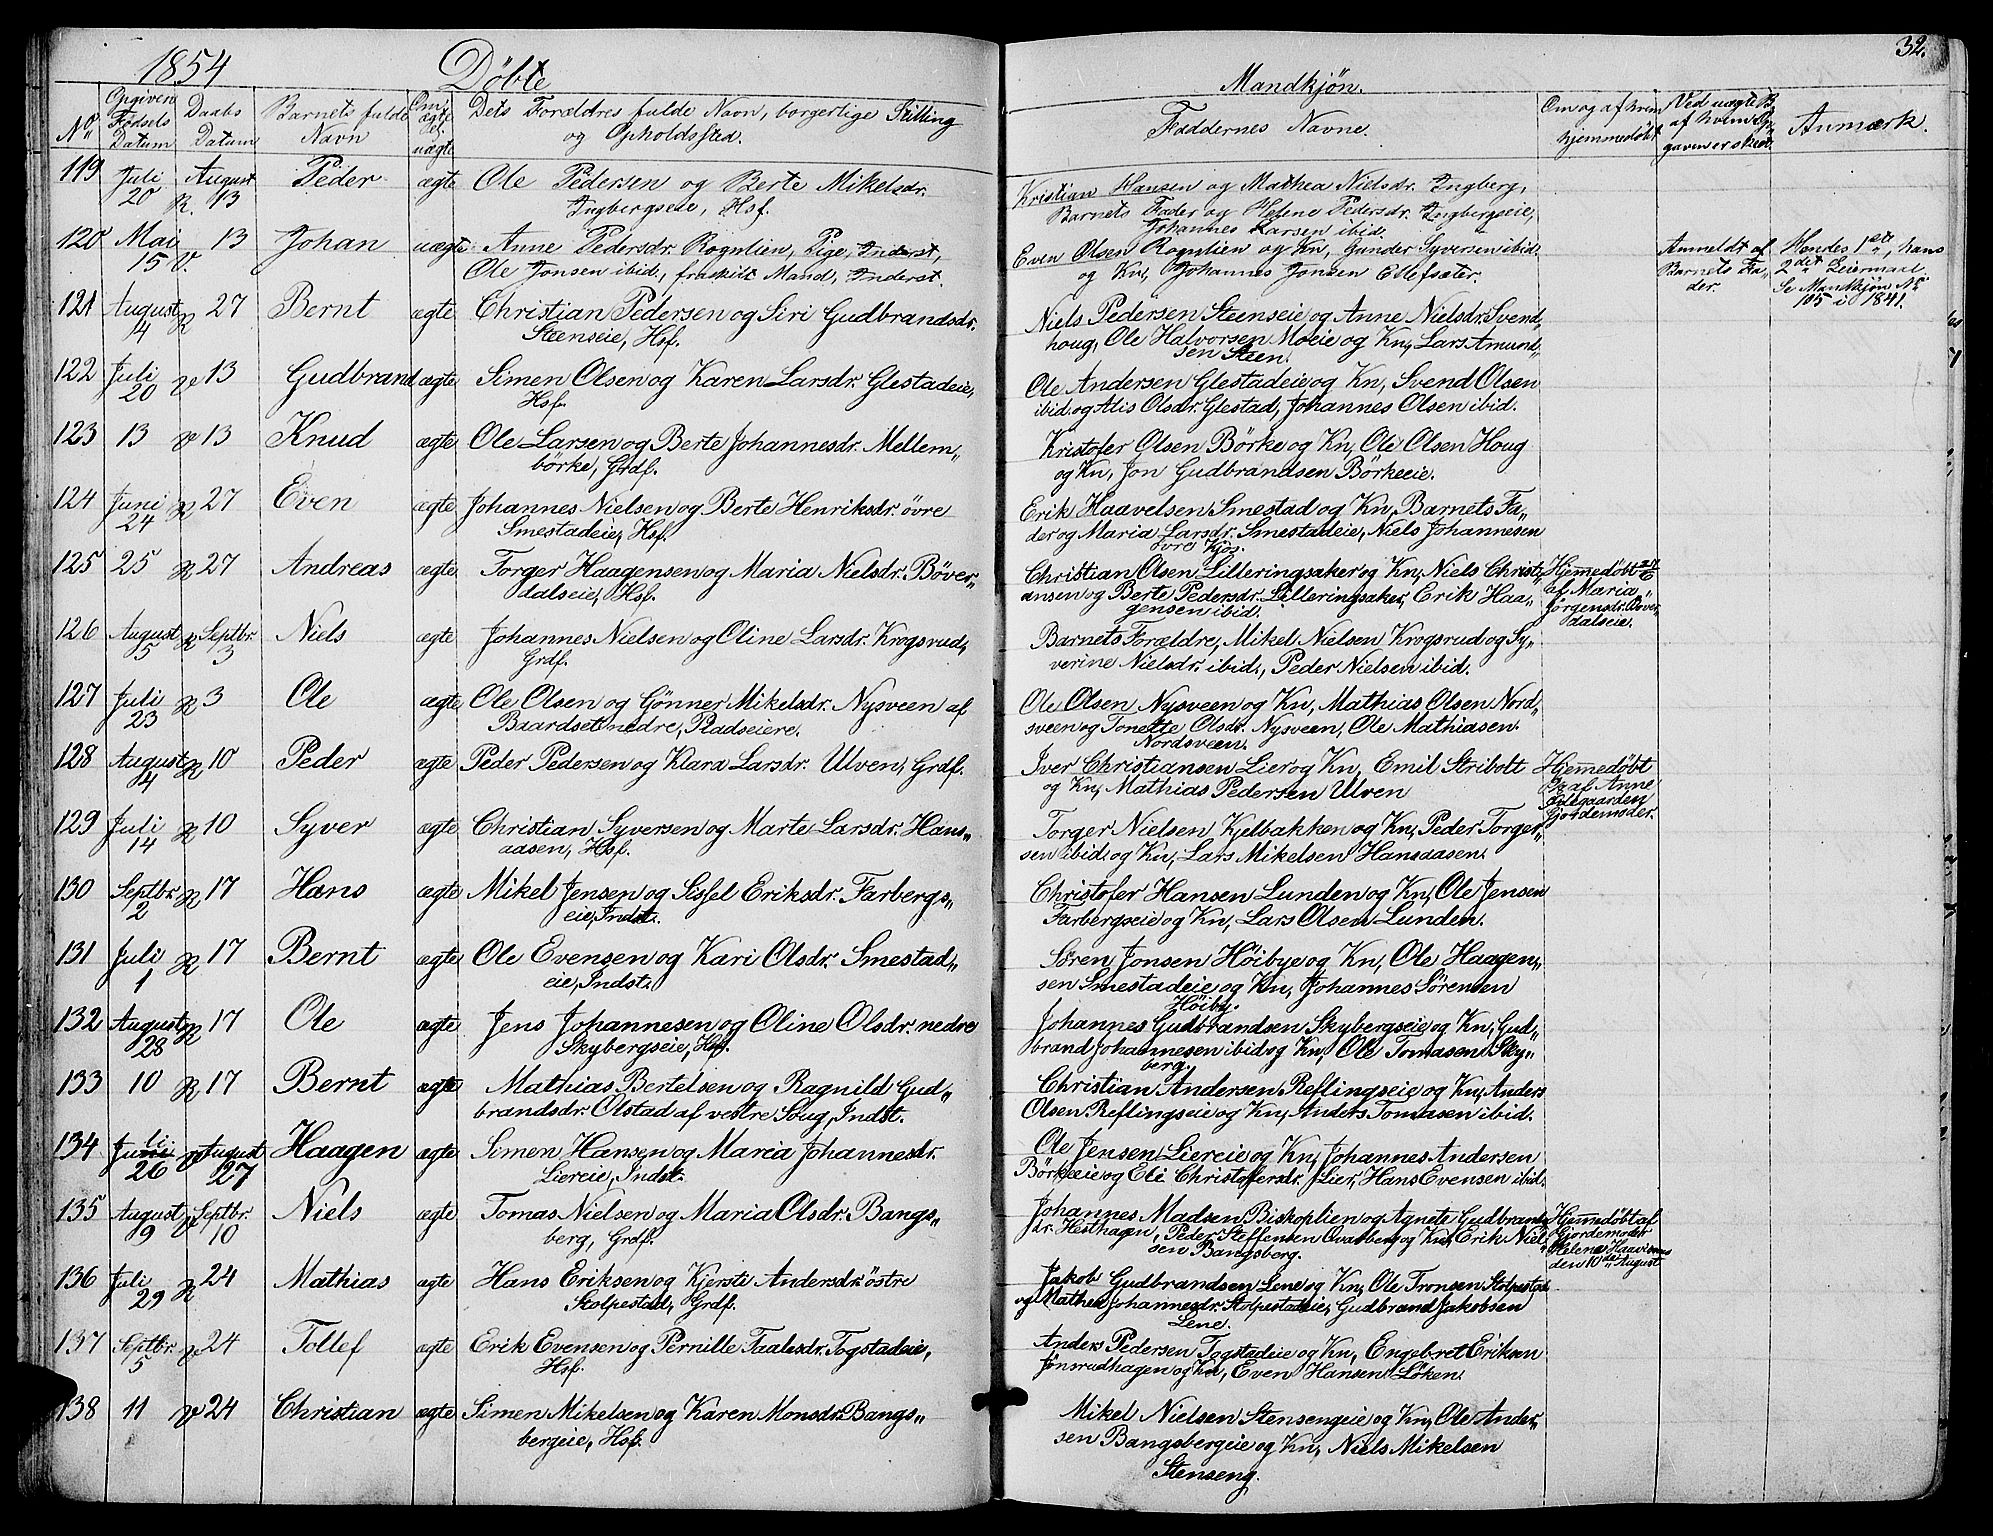 1854 Döbte Mandkjön. 32.
No Opgiven Fødsels Datum Daabs Datum Barnets fulde Navn Om ægte el. uægte Dets Forældres fulde Navn, borgerlige Stilling og Opholdssted. Faddernes Navne. Om og af hvem hjemmedöbt Ved uægte B. af hvem Opgaven er skeet. Anmærk.
119 Juli 20 R. August 13 Peder ægte Ole Pedersen og Berte Mikelsdr. Kristian Hansen og Mathea Nielsdr. Ingberg,
Ingbergseie, Hsf. Barnets Fader og Helene Pedersdr. Ingbergseie,
Johannes Larsen ibid.
120 Mai 15 V. 13 Johan uægte Anne Pedersdr. Rognlien, Pige, Inderst, Even Olsen Rognlien og Kn, Gunder Syversen ibid. Anmeldt af Hendes 1ste, hans
Ole Jonsen ibid., fraskilt Mand, Inderst. og Kn, Johannes Jonsen Ellefsæter. Barnets Fa„ 2det Leiermaal.
der. Se Mandkjön No
105 i 1841.
121 August 14 R 27 Bernt ægte Christian Pedersen og Siri Gudbrandsdr. Niels Pedersen Steenseie og Anne Nielsdr. Svend„
Steenseie, Hsf. houg, Ole Halvorsen Moeie og Kn, Lars Amund„
sen Steen.
122 Juli 20 V 13 Gudbrand ægte Simen Olsen og Karen Larsdr. Glestadeie, Ole Andersen Glestadeie og Kn, Svend Olsen
Hsf. ibid. og Alis Olsdr. Glestad, Johannes Olsen ibid.
123 13 V 13 Knud ægte Ole Larsen og Berte Johannesdr. Mellem„ Kristofer Olsen Börke og Kn, Ole Olsen Houg
börke, Grdf. og Kn, Jon Gudbrandsen Börkeeie.
124 Juni 24 R 27 Even ægte Johannes Nielsen og Berte Henriksdr. övre Erik Haavelsen Smestad og Kn, Barnets Fa„
Smestadeie, Hsf. der og Maria Larsdr. Smestadeie, Niels Johannesen
övre Kjos.
125 25 R 27 Andreas ægte Torger Haagensen og Maria Nielsdr. Böver„ Christian Olsen Lilleringsaker og Kn, Niels Christi„ Hjemmedöbt
dalseie, Hsf. ansen og Berte Pedersdr. Lilleringsaker, Erik Haa„ af Maria
gensen ibid. Jörgensdr. Böver„
dalseie.
126 August 5 R Septbr. 3 Niels ægte Johannes Nielsen og Oline Larsdr. Krogsrud, Barnets Forældre, Mikel Nielsen Krogsrud og Sy„
Grdf. verine Nielsdr. ibid., Peder Nielsen ibid.
127 Juli 23 R 3 Ole ægte Ole Olsen og Gönner Mikelsdr. Nysveen af Ole Olsen Nysveen og Kn, Mathias Olsen Nord„
Baardset nedre, Pladseiere. sveen og Tonette Olsdr. Nysveen, Ole Mathiasen
Nordsveen.
128 August 4 R 10 Peder ægte Peder Pedersen og Klara Larsdr. Ulven, Grdf. Iver Christiansen Lier og Kn, Emil Stribolt Hjemmedöbt
og Kn, Mathias Pedersen Ulven af Anne
Gjordemoder.
129 Juli 14 R 10 Syver ægte Christian Syversen og Marte Larsdr. Hans„ Torger Nielsen Kjelbakken og Kn, Peder Torger„
aasen, Hsf. sen ibid. og Kn, Lars Mikelsen Hansaasen.
130 Septbr. 2 R 17 Hans ægte Mikel Jensen og Sissel Eriksdr. Farbergs„ Christofer Hansen Lunden og Kn, Ole Jensen
eie, Indst. Farbergseie og Kn, Lars Olsen Lunden.
131 Juli 1 R 17 Bernt ægte Ole Evensen og Kari Olsdr. Smestad„ Sören Jonsen Höibye og Kn, Ole Haagen„
eie, Indst. sen Smestadeie og Kn, Johannes Sörensen
Höiby.
132 August 28 R 17 Ole ægte Jens Johannesen og Oline Olsdr. nedre Johannes Gudbrandsen Skybergseie og Kn, Gud„
Skybergseie, Hsf. brand Johannesen ibid og Kn, Ole Tomasen Sky„
berg.
133 10 R 17 Bernt ægte Mathias Bertelsen og Ragnild Gud„ Christian Andersen Reflingseie og Kn, Anders
brandsdr. Olstad af vestre Soug, Indst. Olsen Reflingseie og Kn, Anders Tomasen ibid.
134 Juli 26 V August 27 Haagen ægte Simen Hansen og Maria Johannesdr. Ole Jensen Liereie og Kn, Johannes Andersen
Liereie, Indst. Börkeeie og Eli Christofersdr. Lier, Hans Evensen ibid.
135 August 9 V Septbr. 10 Niels ægte Tomas Nielsen og Maria Olsdr. Bangs„ Johannes Madsen Biskoplien og Agnete Gudbrands„ Hjemmedöbt af
berg, Grdf. dr. Hesthagen, Peder Steffensen Qvarberg og Kn, Erik Niel„ Gjordemoder
sen Bangsberg. Helene
den 10de August
136 Juli 29 R 24 Mathias ægte Hans Eriksen og Kjersti Andersdr. östre Jakob Gudbrandsen Lene og Kn, Ole Tronsen Stolpestad
Stolpestad, Grdf. og Mathea Johannesdr. Stolpestadeie, Gudbrand Jakobsen
Lene.
137 Septbr. 5 V 24 Tollef ægte Erik Evensen og Pernille Taalesdr. Togstadeie, Anders Pedersen Togstadeie og Kn, Engebret Eriksen
Hsf. Jönsrudhagen og Kn, Even Hansen Löken.
138 11 V 24 Christian ægte Simen Mikelsen og Karen Monsdr. Bangs„ Mikel Nielsen Stensengeie og Kn, Ole Ander„
bergeie, Hsf. sen Bangsbergeie og Kn, Niels Mikelsen
Stenseng.